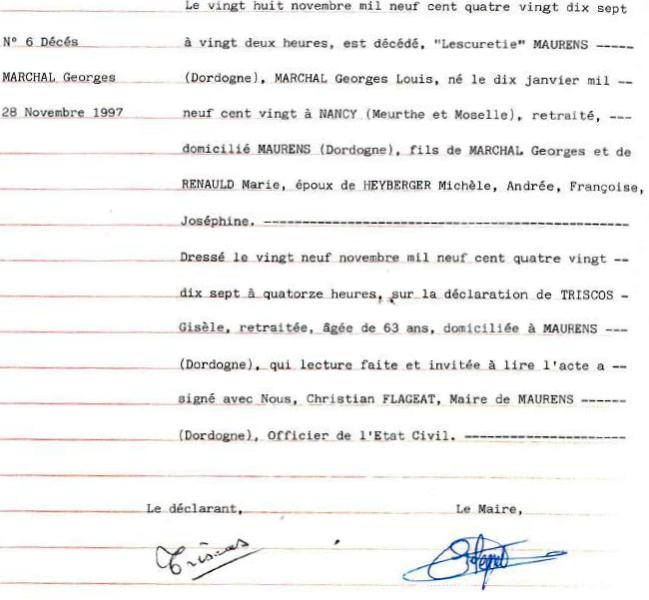 Le vingt huit novembre mil neuf cent quatre vingt dix sept
N° 6 Décés
à vingt deux heures, est décédé, "Lescuretie" MAURENS -----
MARCHAL Georges
(Dordogne), MARCHAL Georges Louis, né le dix janvier mil --
28 Novembre 1997
neuf cent vingt à NANCY (Meurthe et Moselle), retraité, ---
domicilié MAURENS (Dordogne), fils de MARCHAL Georges et de
RENAULD Marie, époux de HEYBERGER Michèle, Andrée, Françoise,
Joséphine. ------------------------------------------------
Dressé le vingt neuf novembre mil neuf cent quatre vingt --
dix sept à quatorze heures, sur la déclaration de TRISCOS -
Gisèle, retraitée, âgée de 63 ans, domiciliée à MAURENS ---
(Dordogne), qui lecture faite et invitée à lire l'acte a --
signé avec Nous, Christian FLAGEAT, Maire de MAURENS ------
(Dordogne), Officier de l'Etat Civil. ---------------------
Le déclarant,
Le Maire,
Triscos